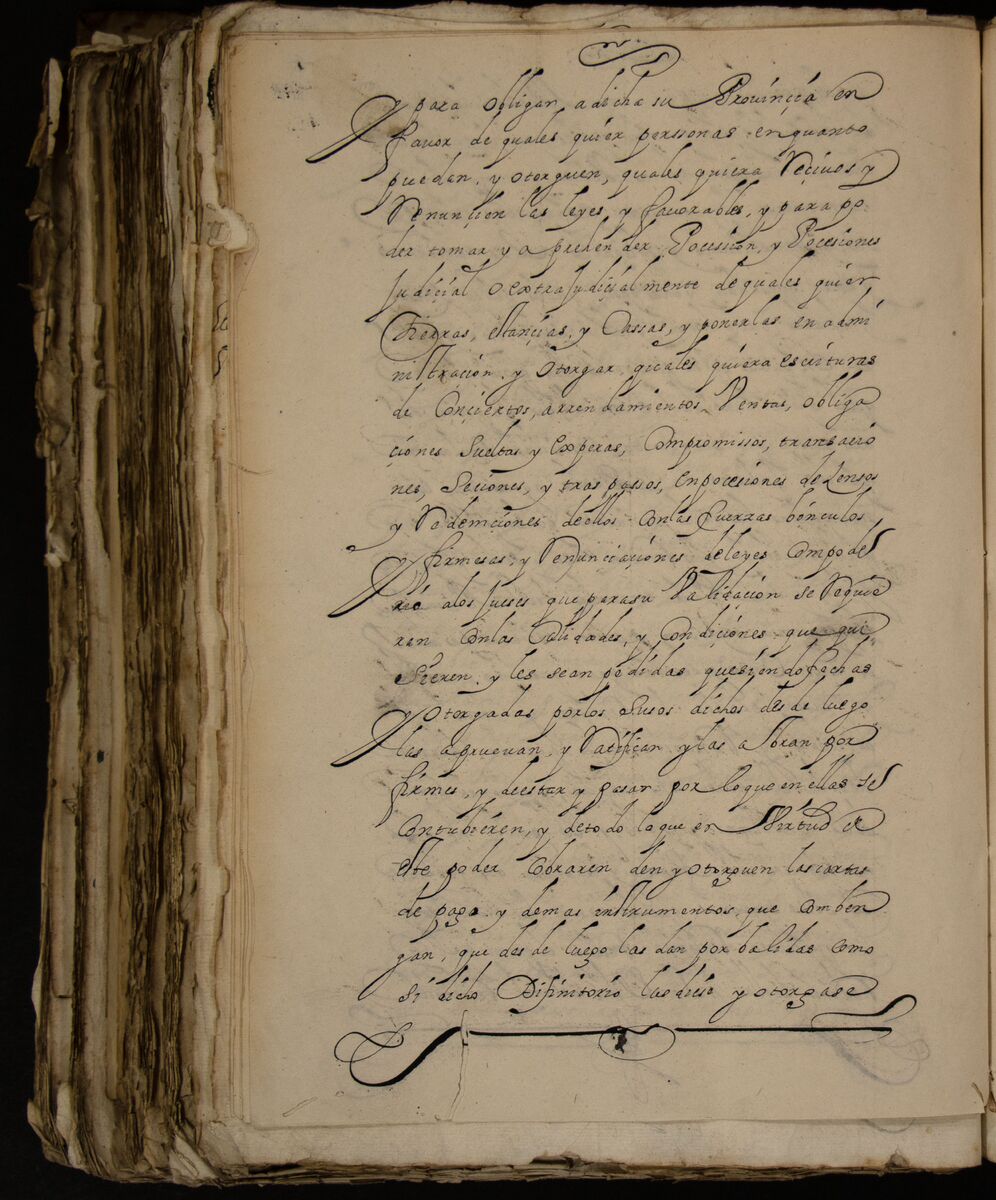 y para obligar a dicha su Provinçia en
favor de quales quier perssonas en quanto
puedan, y otorguen, quales quiera Reçivos y
Renunçien las leyes, y favorables, y para po
der tomar y aprehender Pocesion, y Pocesiones
judiçial o extrajudiçialmente de quales quier
tierras, estançias, y Cassas, y ponerlas en admi
nistraçion, y otorgar, quales quiera escrituras
de Conçiertos, arrendamientos, Ventas, obliga
çiones sueltas y Experas, Compromissos, transacio
nes, Seciones, y traspassos, en pocesiones de Sensos
y Redemçiones dellos con las fuerzas bonculos
y firmesas, y Renunciaçiones de leyes Compode
rio a los Jueses que para su Validaçion se Requie
ran Con las Calidades, y Condiçiones que qui
sieren, y les sean pedidas que siendo fechas
y otorgadas por los susos dichos des de luego
las apruevan, y Ratifican y las abran por
firmes, y de estar y pasar por lo que en ellas se
Contubieren, y de todo lo que en Virtud de
este poder Cobraren den y otorguen las cartas
de pago, y demas instrumentos, que Comben
gan, que des de luego las dan por balidas Como
si dicho Difinitorio las diese y otorgase